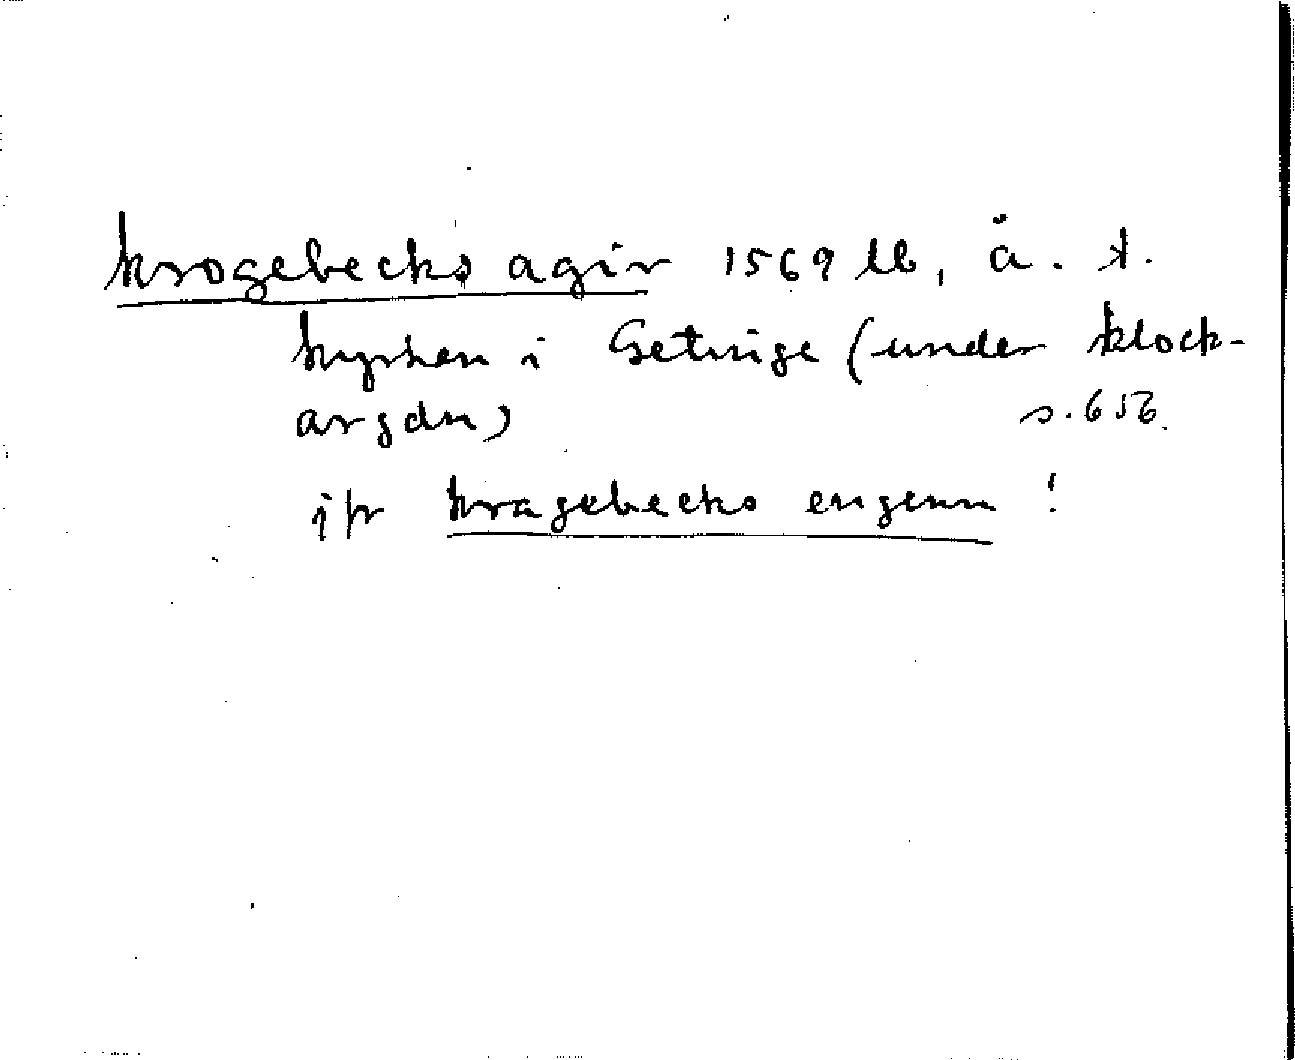 krogebecks agir 1569 lb, ä. t.
kyrkan i Getinge (under klock-
argdn) s. 656.
jfr kragebecks engenn !